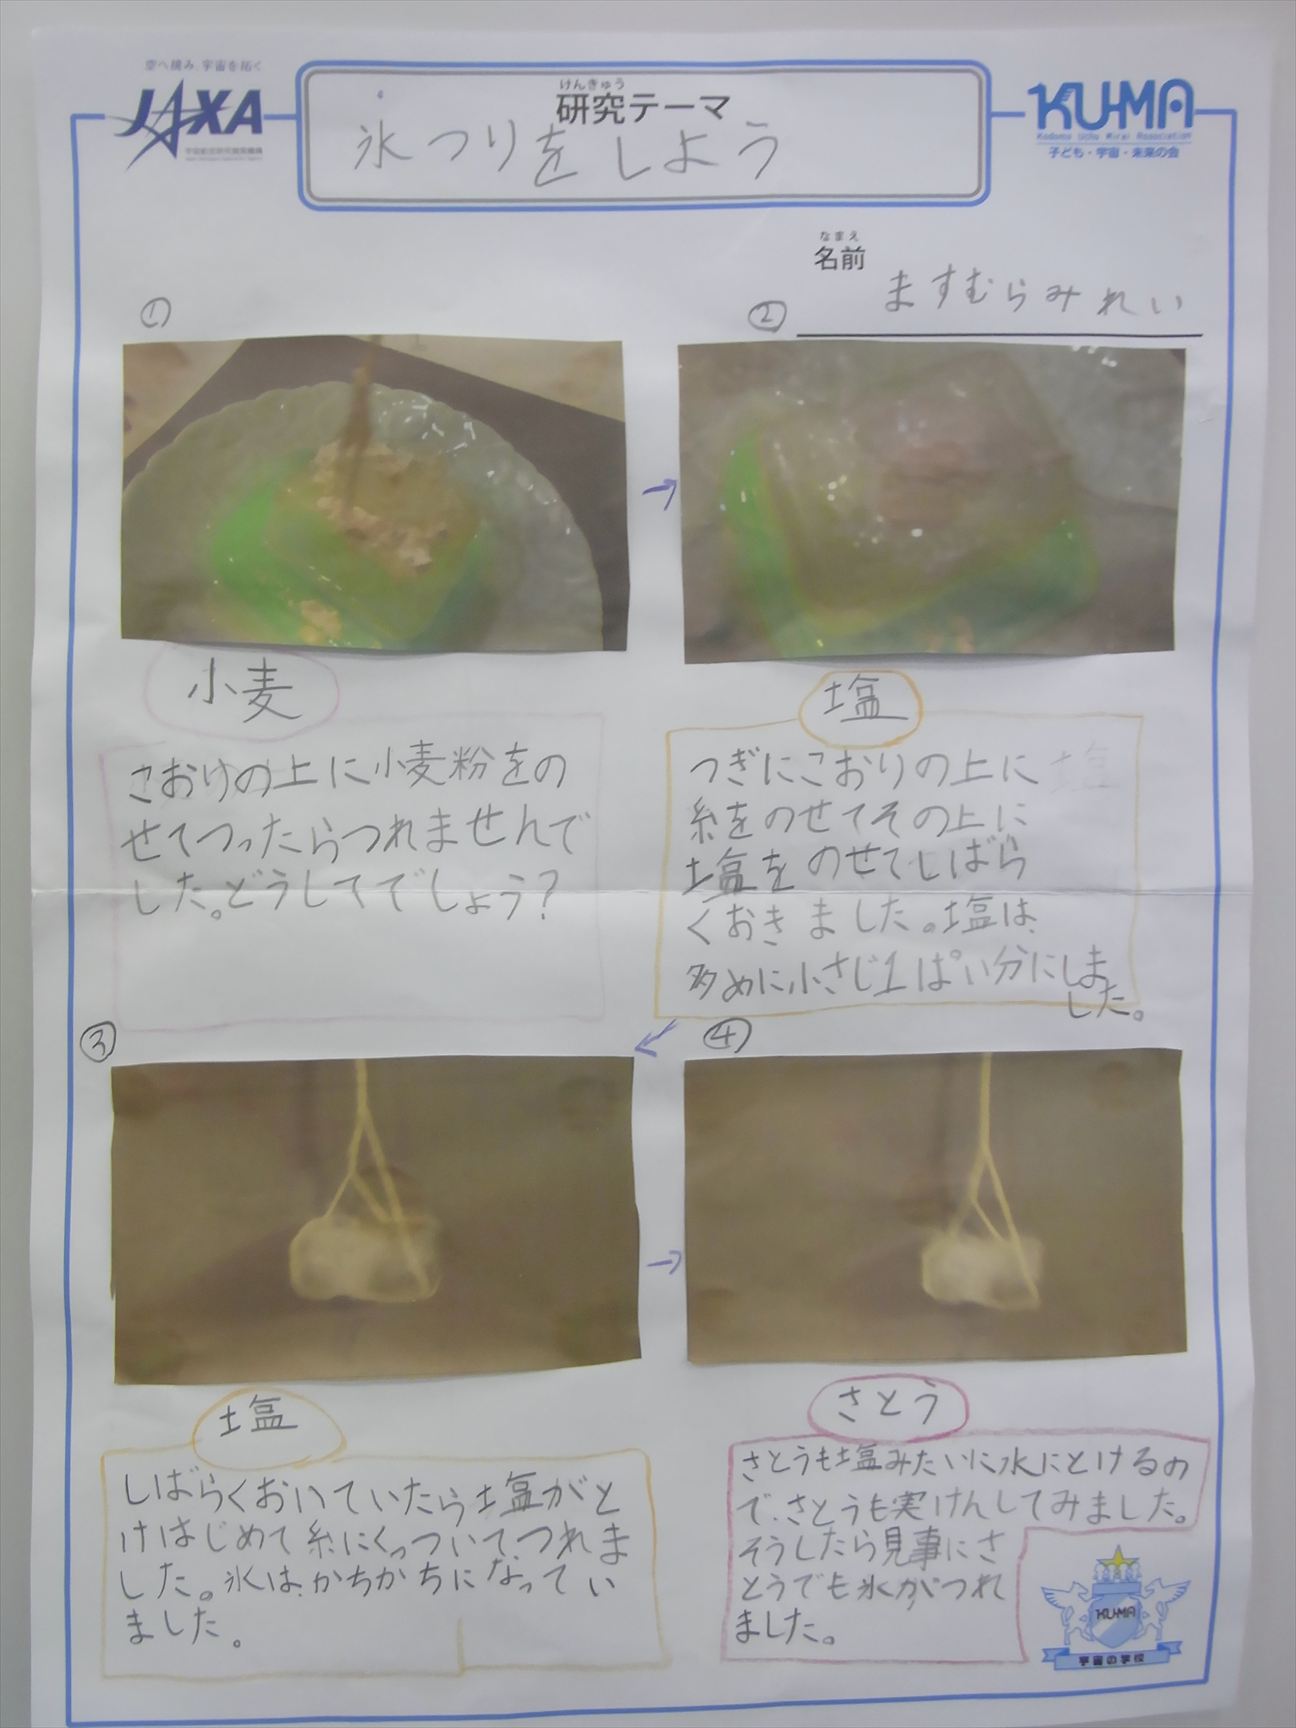 空へ挑み、宇宙を拓く
JAXA
宇宙航空研究開発機構
けんきゅう
研究テーマ
氷つりをしよう
KU-MA
Kodomo Uchu Mirai Association
子ども・宇宙・未来の会
なまえ
名前
ますむらみれい
①
②
小麦
こおりの上に小麦粉をの
せてつったらつれませんで
した。どうしてでしょう?
塩
つぎにこおりの上に
糸をのせてその上に
塩をのせてしばら
くおきました。塩は、
多めに小さじ1ぱい分にしま
した。
③
④
塩
しばらくおいていたら塩がと
けはじめて糸にくっついてつれま
した。氷は、かちかちになってい
ました。
さとう
さとうも塩みたいに水にとけるの
で、さとうも実けんしてみました。
そうしたら見事にさ
とうでも氷がつれ
ました。
KU-MA
宇宙の学校